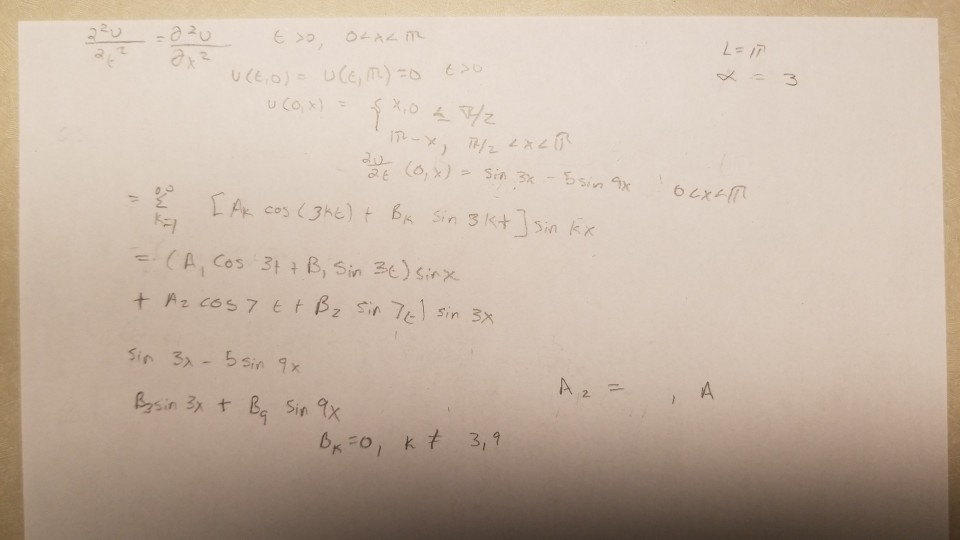 ∂²u/∂t² = ∂²u/∂x² t>0, 0<x<π
L = π
α = 3
u(t,0) = u(t,π) = 0 t>0
u(0,x) = { x, 0 ≤ π/2
π-x, π/2 <x<π
∂u/∂t (0,x) = sin 3x - 5 sin 9x 0<x<π
= ∞ Σ k=1 [Ak cos (3kt) + Bk sin 3kt] sin kx
= (A₁ cos 3t + B₁ sin 3t) sin x
+ A₂ cos 7t + B₂ sin 7t) sin 3x
sin 3x - 5 sin 9x
A₂ = , A
B₃ sin 3x + B₉ sin 9x
Bk = 0, k ≠ 3,9